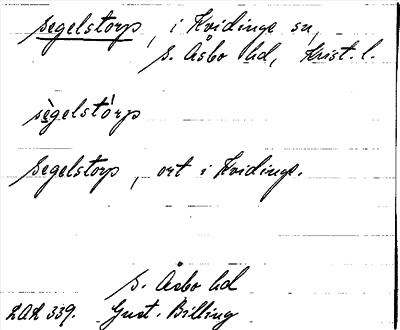 segelstorp, i Kvidinge sn,
S. Åsbo hd, Krist. l.
sègelstórp
Segelstorp, ort i Kvidinge.
S. Åsbo hd
LAL 339. Gust. Billing